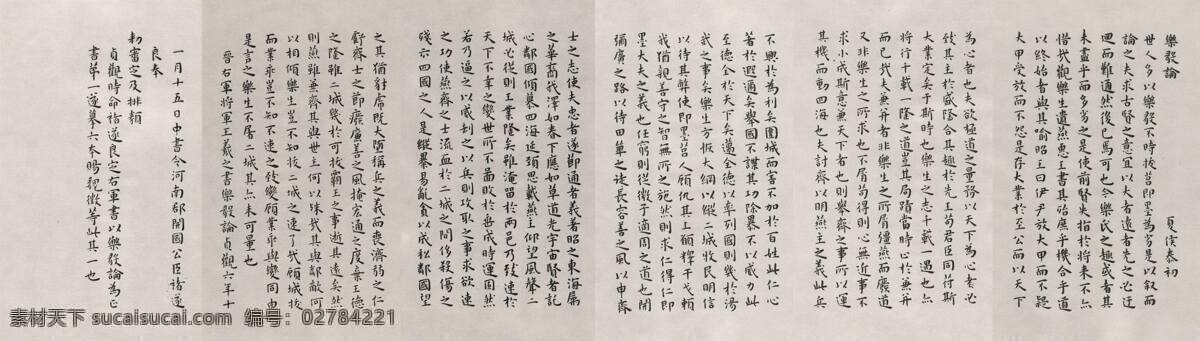 樂毅論
夏侯泰初
世人多以樂毅不時拔莒即墨為劣是以叙而
論之夫求古賢之意宜以大者遠者先之必迂
迴而難通然後已焉可也今樂氏之趣或者其
未盡乎而多劣之是使前賢失指於將来不亦
惜哉觀樂生遺燕惠王書其殆庶乎機合乎道
以終始者與其喻昭王曰伊尹放大甲而不疑
大甲受放而不怨是存大業於至公而以天下
為心者也夫欲極道之量務以天下為心者必
致其主於盛隆合其趣於先王苟君臣同符斯
大業定矣于斯時也樂生之志千載一遇也亦
將行千載一隆之道豈其局蹟當時止於兼并
而已哉夫兼并者非樂生之所屑彊燕而廢道
又非樂生之所求也不屑苟得則心無近事不
求小成斯意兼天下者也則舉齊之事所以運
其機而動四海也夫討齊以明燕主之義此兵
不興於為利矣圍城而害不加於百姓此仁心
著於遐邇矣舉國不謀其功除暴不以威力此
至德全於天下矣邁全德以率列國則幾於湯
武之事矣樂生方恢大綱以縱二城牧民明信
以待其弊使即墨莒人顧仇其上願釋干戈賴
我猶親善守之智無所之施然則求仁得仁即
墨大夫之義也任窮則從微子適周之道也開
彌廣之路以待田單之徒長容善之風以申齊
士之志使夫忠者遂節通者義著昭之東海屬
之華裔我澤如春下應如草道光宇宙賢者託
心鄰國傾慕四海延頸思戴燕主仰望風聲二
城必從則王業隆矣雖淹留於兩邑乃致速於
天下不幸之變世所不圖敗於垂成時運固然
若乃逼之以威劫之以兵則攻取之事求欲速
之功使燕齊之士流血於二城之間侈殺傷之
殘示四國之人是縱暴易亂貪以成私鄰國望
之其猶豺虎既大墮稱兵之義而喪濟弱之仁
虧齊士之節廢廉善之風掩宏通之度棄王德
之隆雖二城幾於可拔霸王之事逝其遠矣然
則燕雖兼齊其與世主何以殊哉其與鄰敵何
以相傾樂生豈不知拔二城之速了哉顧城拔
而業乖豈不知不速之致變顧業乖與變同由
是言之樂生不屠二城其亦未可量也
晉右軍將軍王羲之書樂毅論貞觀六年十
一月十五日中書令河南郡開國公臣褚遂
良奉
勑審定及排類
貞觀時命褚遂良定右軍書以樂毅論為正
書第一遂摹六本賜魏徵等此其一也
素材天下 sucaisucai.com 编号：02784221